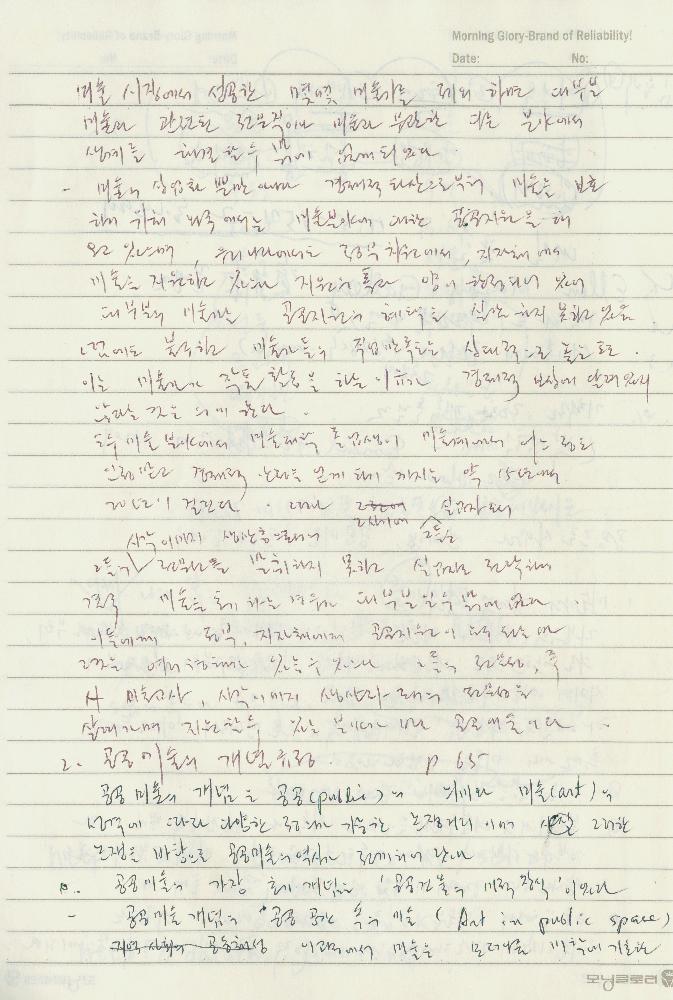 Morning Glory-Brand of Reliability!
Date: No:
미술 시장에서 성공한 몇몇 미술가를 제외 하면 대부분
미술과 관련된 전문직이나 미술과 무관한 다른 분야에서
생계를 해결할 수 밖에 없게 되었다.
- 미술의 상업화 뿐만 아니라 경제적 파산으로부터 미술을 보호
하기 위해 각국에서는 미술분야에 대한 공공지원을 해
오고 있으며, 우리나라에서도 정부 차원에서, 지자체에서
미술을 지원하고 있으나 지원의 폭과 양이 한정되어 있어
대부분의 미술가들은 공공지원의 혜택을 실감하지 못하고 있음
그럼에도 불구하고 미술가들의 직업만족도는 상대적으로 높은 편.
이는 미술가가 작품 활동을 하는 이유가 경제적 보상에 달려있지
않다는 것을 의미 한다.
순수 미술 분야에서 미술대학 졸업생이 미술계에서 어느 정도
인정받고 경제적 안정을 얻게 되기 까지는 약 15년에서
20년이 걸린다. 그러나 실업자로서
시각이미지 생산자로서의 그들은
그들의 전문성을 발휘하지 못하고 실업자로 전락하여
결국 미술을 포기 하는 경우가 대부분일 수 밖에 없다
이들에게 정부, 지자체에서 공공지원이 이루어 지는데
그것은 여러 형태가 있을 수 있으나 그들의 전문성, 즉
시각이미지 생산자로서의 전문성을
살려가며 지원할 수 있는 분야가 바로 공공미술이다.
2. 공공미술의 개념 유형. p 65
공공미술의 개념은 공공(public)의 의미와 미술(art)의
성격에 따라 다양한 정의가 가능한 논쟁거리이며 사실 그러한
논쟁을 바탕으로 공공미술의 역사가 전개되어 왔다
공공미술의 가장 초기 개념은 '공공건물의 미적 장식'이었다
- 공공미술 개념의 "공공 공간 속의 미술 (Art in public space)
이 과정에서 미술은 모더니즘 미학에 기초한
모닝글로리